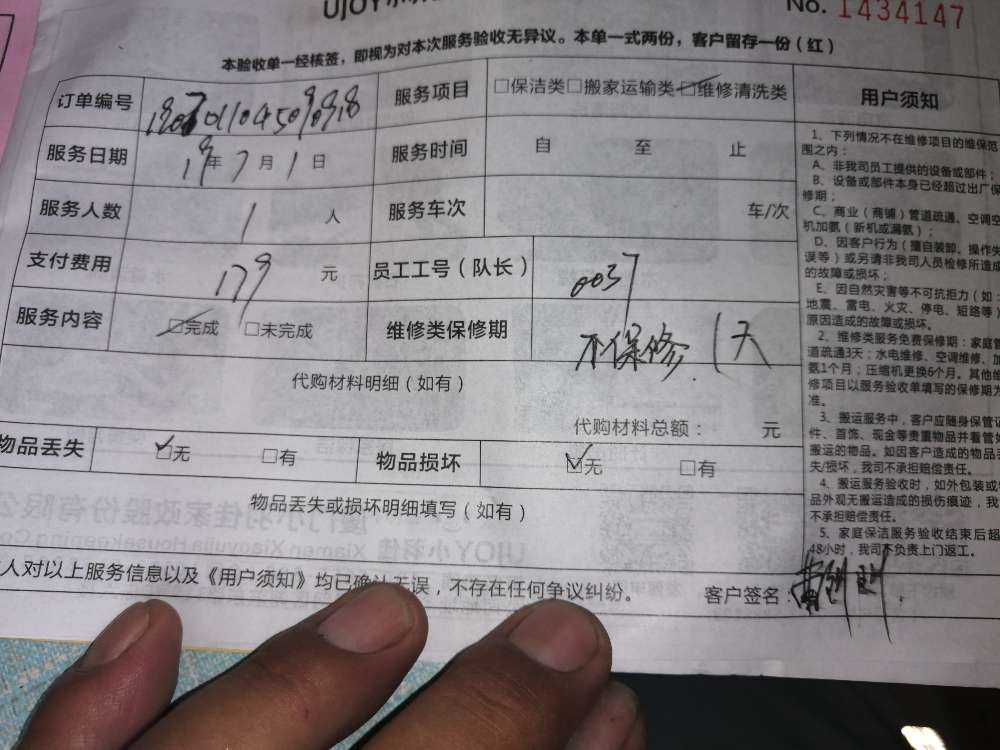 No. 1434147
本验收单一经核签，即视为对本次服务验收无异议。本单一式两份，客户留存一份（红）
订单编号
服务项目 □保洁类□搬家运输类□维修清洗类
服务日期 19年7月1日
服务时间 自 至 止
服务人数 1 人
服务车次 车/次
支付费用 179 元
员工工号（队长） 0037
服务内容 □完成 □未完成
维修类保修期 不保修. 1天
代购材料明细（如有）
代购材料总额： 元
物品丢失 □无 □有
物品损坏 □无 □有
物品丢失或损坏明细填写（如有）
人对以上服务信息以及《用户须知》均已确认无误，不存在任何争议纠纷。
客户签名：
用户须知
1、下列情况不在维修项目的维保范
围之内：
A、非我司员工提供的设备或部件；
B、设备或部件本身已经超过出厂保
修期；
C、商业（商铺）管道疏通、空调空
机加氨（新机或漏氨）；
D、因客户行为（擅自装卸、操作失
误等）或另请非我司人员检修所造成
的故障或损坏；
E、因自然灾害等不可抗拒力（如：
地震、雷电、火灾、停电、短路等）
原因造成的故障或损坏。
2、维修类服务免费保修期：家庭管
道疏通3天；水电维修、空调维修、加
氨1个月；压缩机更换6个月。其他维
修项目以服务验收单填写的保修期为
准。
3、搬运服务中，客户应随身保管证
件、首饰、现金等贵重物品并看管
搬运的物品。如因客户造成的物品丢
失/损坏，我司不承担赔偿责任。
4、搬运服务验收时，如外包装或
品外观无搬运造成的损伤痕迹，我
不承担赔偿责任。
5、家庭保洁服务验收结束后超
48小时，我司不负责上门返工。